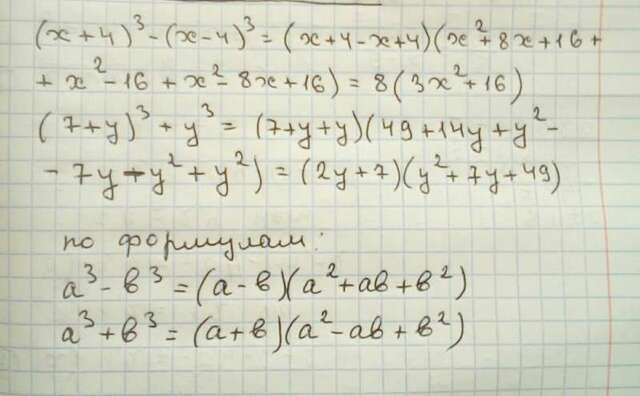 (x+4)³-(x-4)³=(x+4-x+4)(x²+8x+16+
+x²-16+x²-8x+16)=8(3x²+16)
(7+y)³+y³=(7+y+y)(49+14y+y²-
-7y-y²+y²)=(2y+7)(y²+7y+49)
по формулам:
a³-в³=(a-в)(a²+ав+в²)
a³+в³=(a+в)(a²-ав+в²)